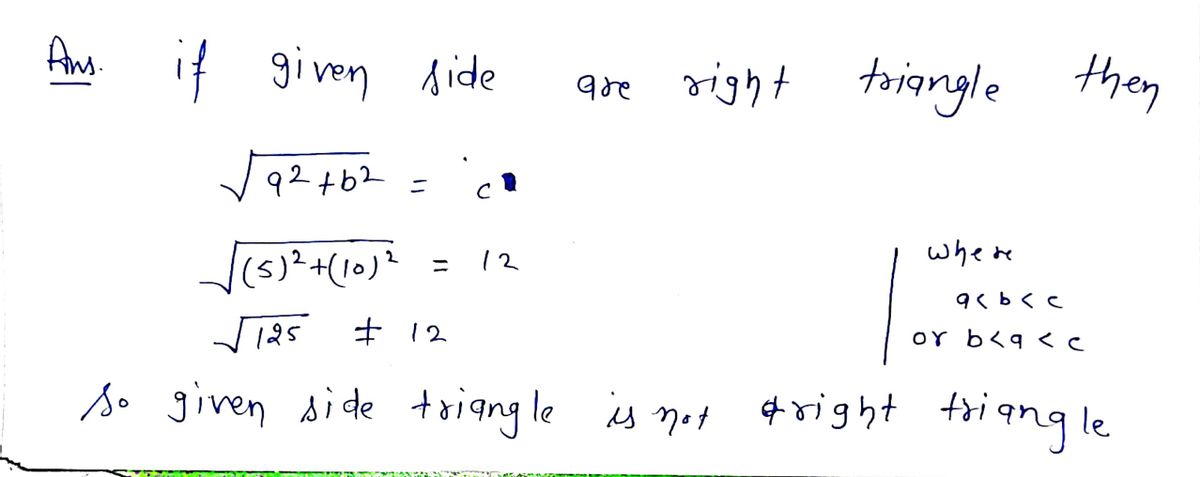 Ans. if given side are right triangle then
√a²+b² = c
√(5)²+(10)² = 12
√125 ≠ 12
where
a<b<c
or b<a<c
So given side triangle is not right triangle